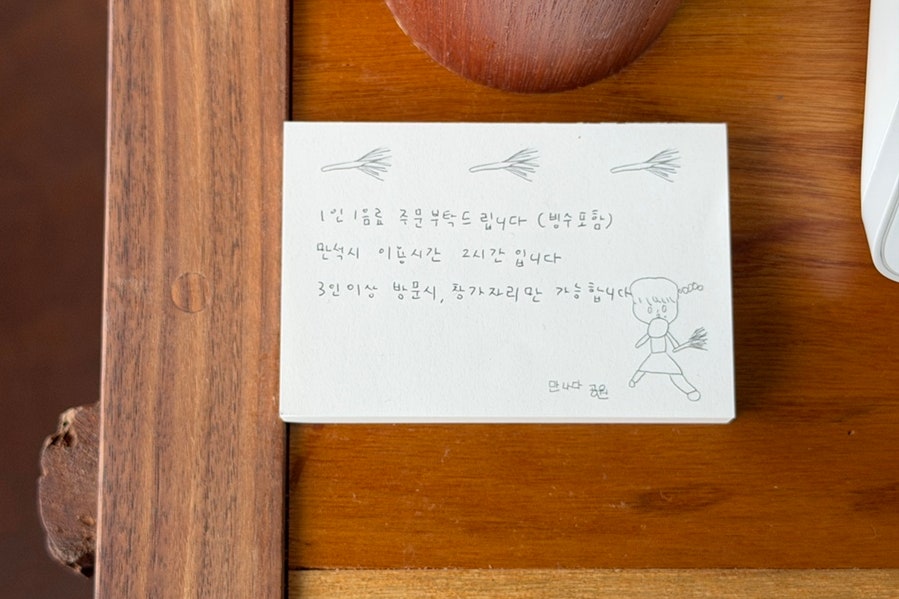 1인 1음료 주문부탁드립니다 (빙수포함)
만석시 이용시간 2시간 입니다
3인이상 방문시, 창가자리만 가능합니다
만나다 공원